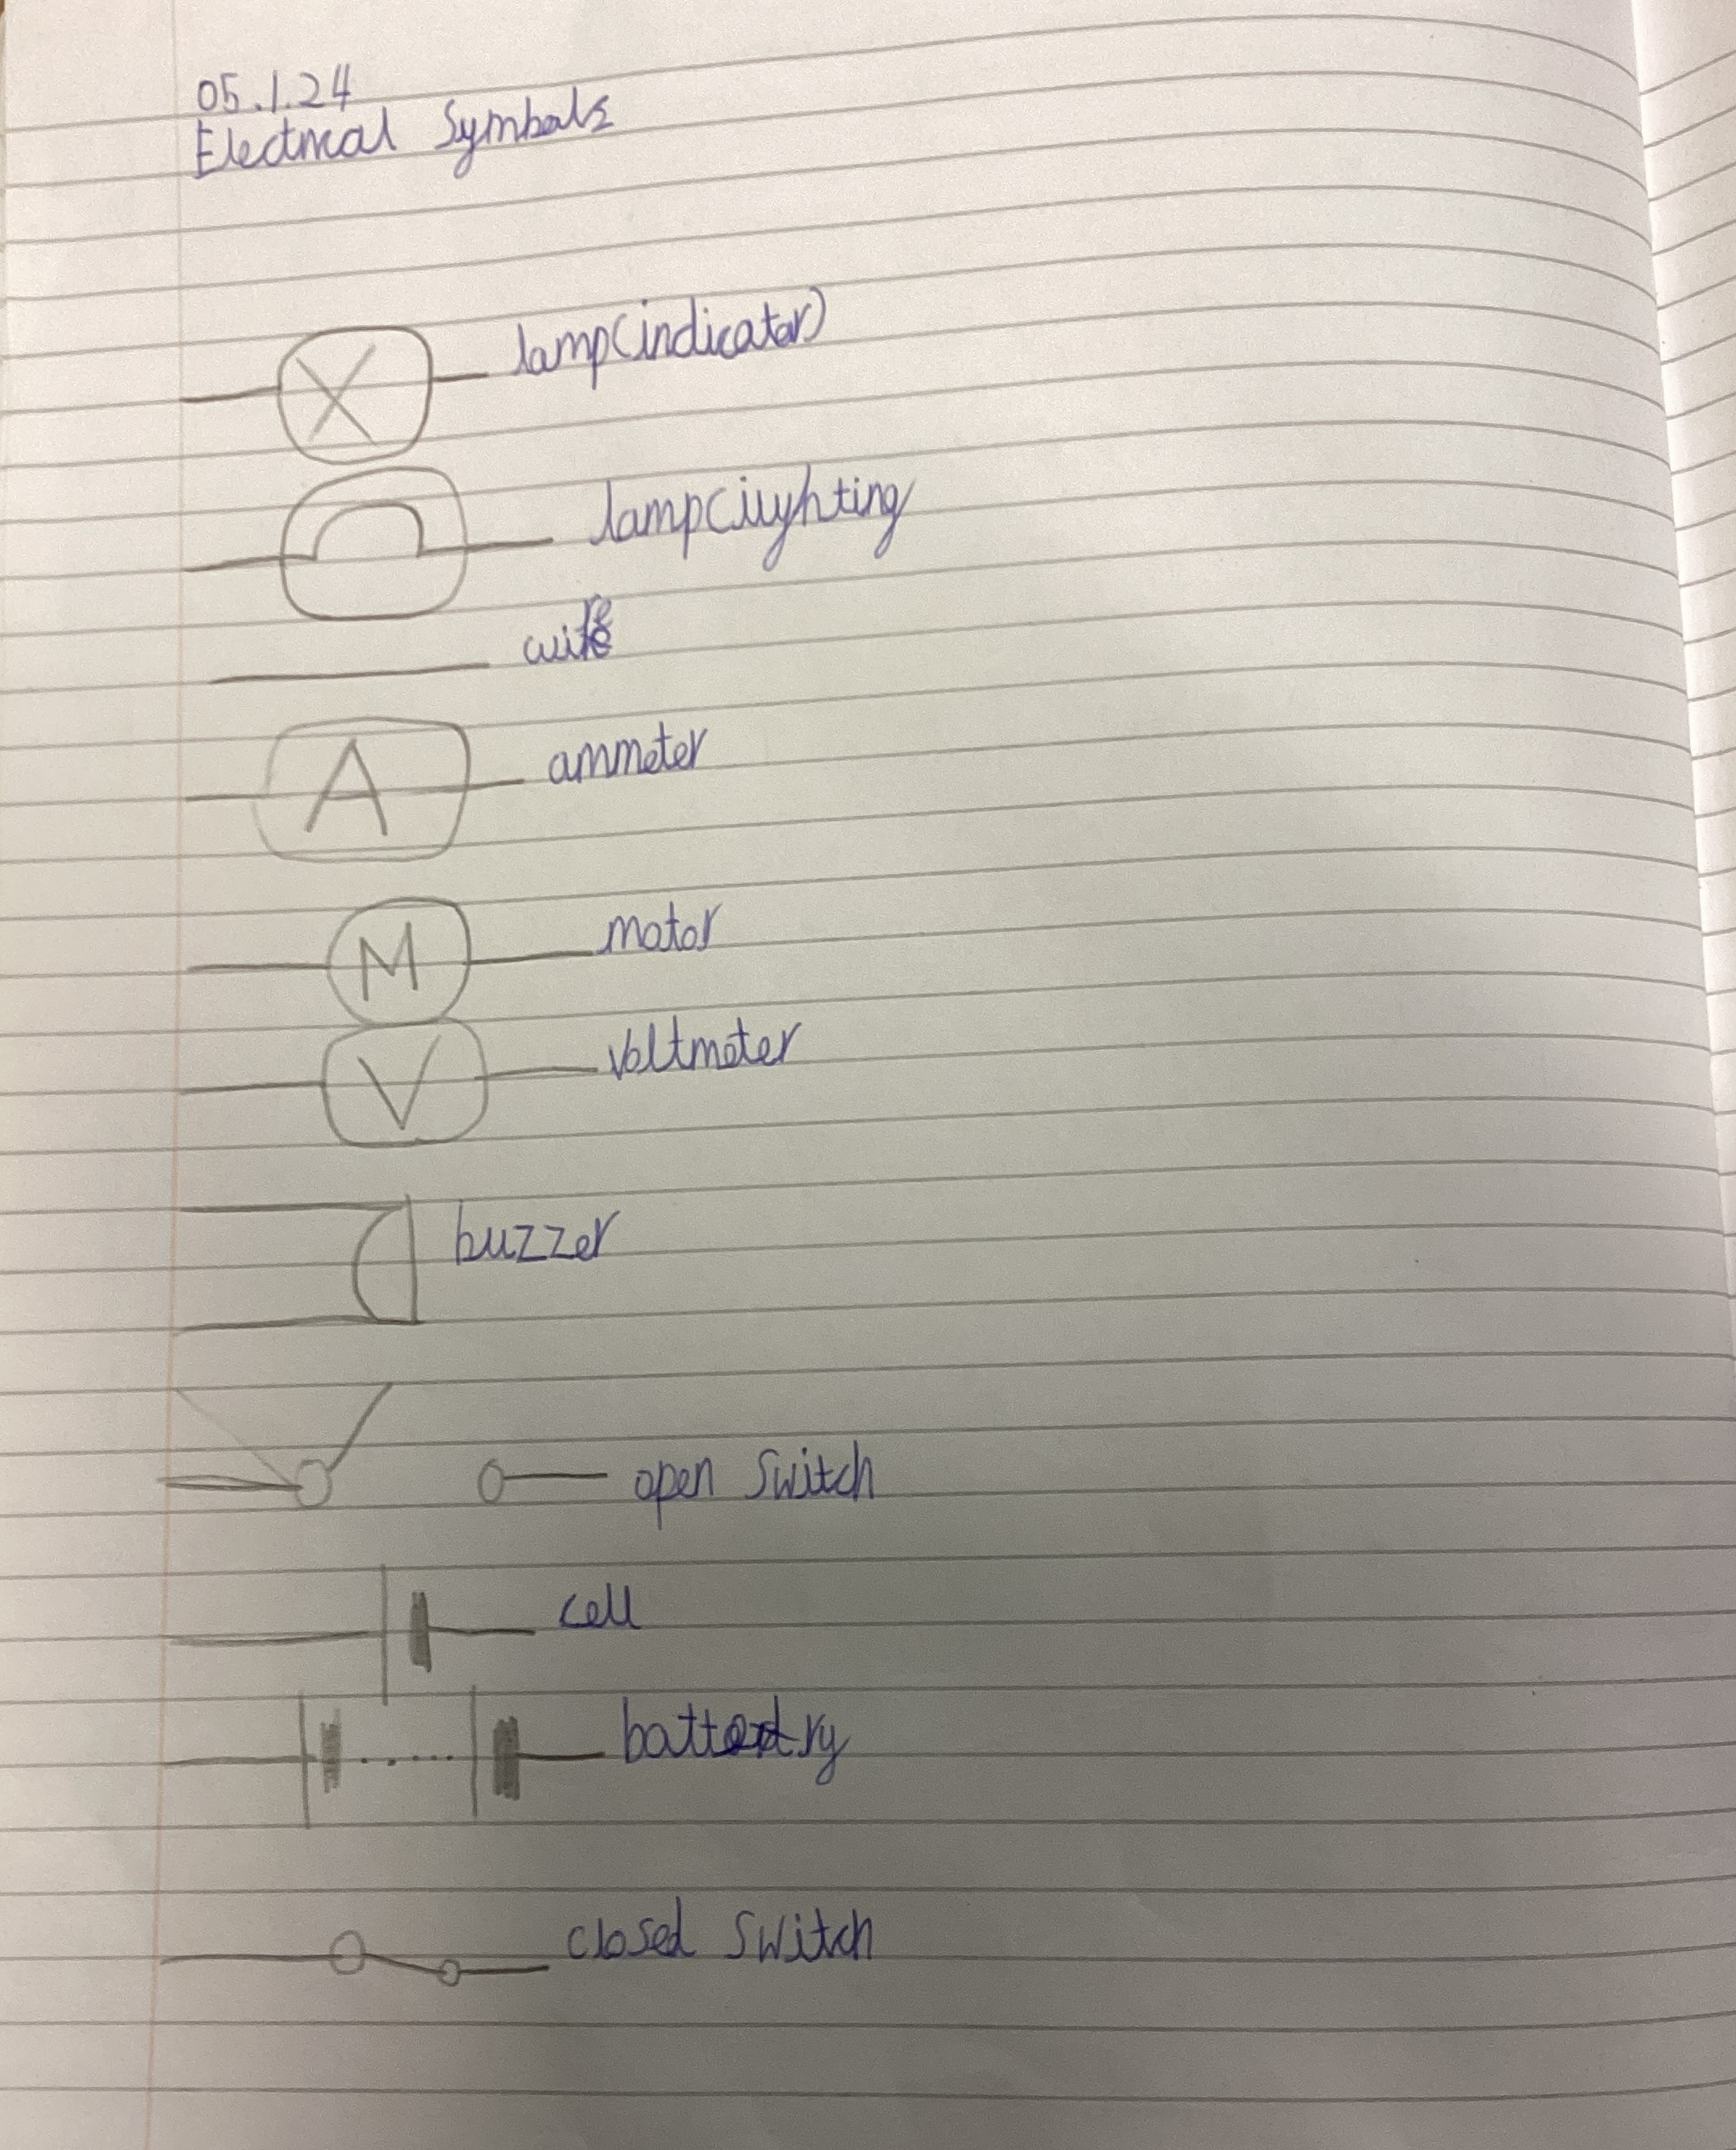 05.1.24
Electrical Symbols
X lamp(indicator)
lamp(
wire
A ammeter
M motor
V voltmeter
buzzer
open switch
cell
battery
closed switch